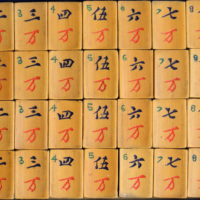 二 3 三 4 四 5 伍 6 六 7 七 8
万 万 万 万 万 万
二 3 三 4 四 5 伍 6 六 7 七 8
万 万 万 万 万 万
二 3 三 4 四 5 伍 6 六 7 七 8
万 万 万 万 万 万
二 3 三 4 四 5 伍 6 六 7 七 8
万 万 万 万 万 万